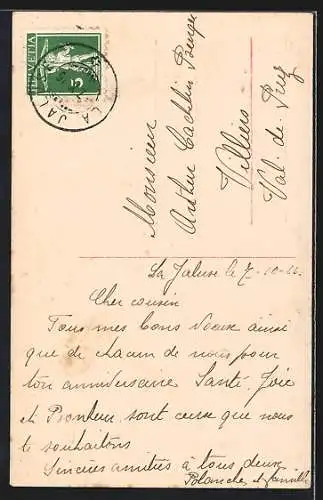 HELVETIA
5
LA JALU
Monsieur
Arthur Cachelin Berger
Villiers
Val de Ruz
La Jaluse le 7-10-
Cher cousin
Tous mes bons voeux ainsi
que de chacun de nous pour
ton anniversaire Santé, Joie
et Bonheur sont ceux que nous
te souhaitons
Sincères amitiés à tous deux
Blanche et famille